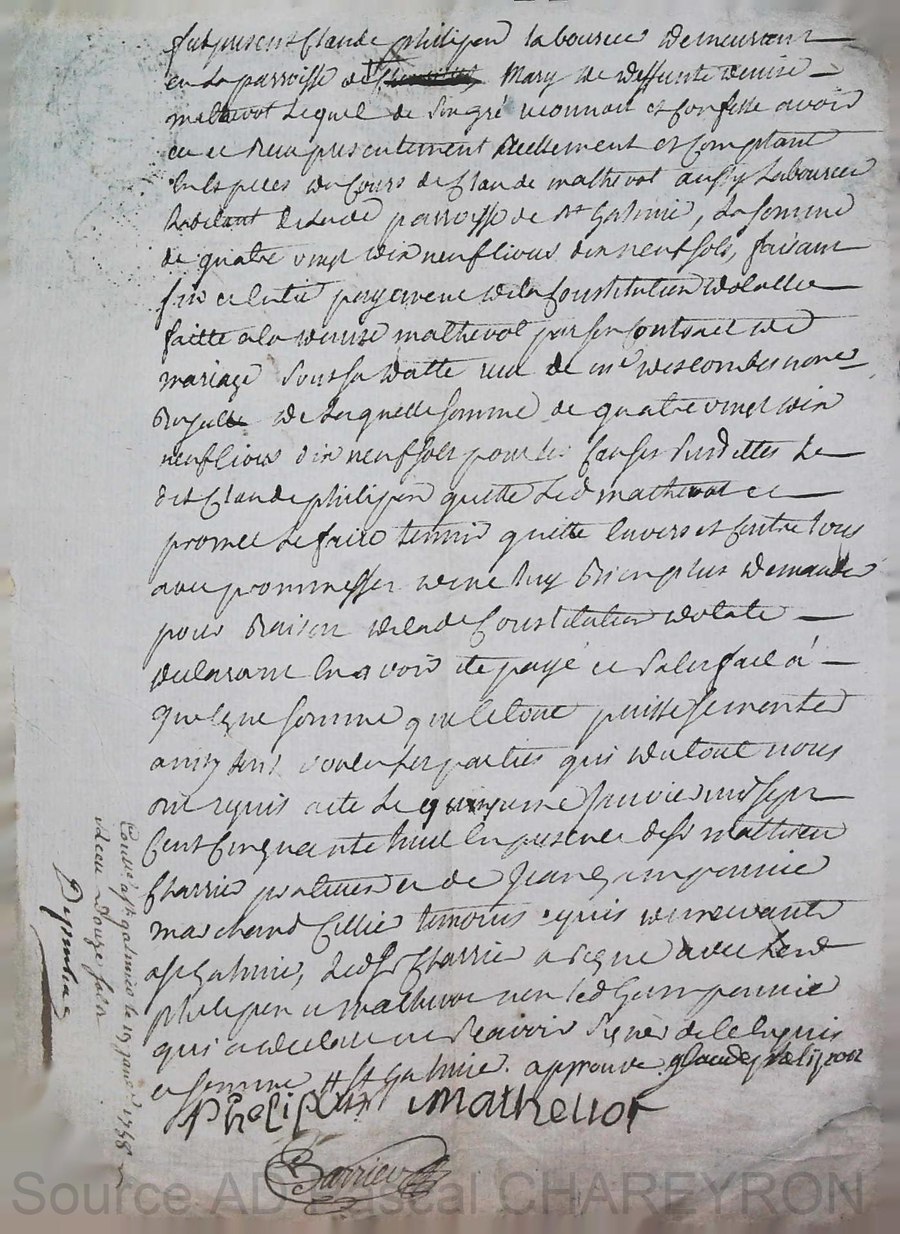 fut present Claude philipon laboureur demeurant
en la parroisse de Mary de deffunte denise
mathevot lequel de son gré reconnait et confesse avoir
eu et receu presentement reellement et comptant
en especes du cours de Claude mathevot aussy laboureur
habitant parroisse de st Galmier, la somme
de quatre vingt dix neuf livres dix neuf sols, faisant
fin et entier payement de la Constitution dotalle
faitte a la denise mathevot par son contract de
mariage sous sa datte receu de me descombes nore
Royalle de laquelle somme de quatre vingt dix
neuf livres dix neuf sols pour les causes susdittes le
dit Claude philipon quitte led mathevot et
promet le faire tenir quitte envers et contre tous
avec promesse de ne luy rien plus demander
pour raison de lade Constitution dotale
declarant en avoir ete payé et satisfait a
quelque somme que le tout puisse se monter
ainsy sont voulu les parties qui du tout nous
ont requis acte le quinzieme Janvier mil sept
cent cinquante huit en presence de sr mathieu
Charrier praticien et de Jean Gamponnie
marchand temoins requis demeurants
a st Galmier, led sr Charrier a signé avec lesd
philipon et mathevot non led Gamponnie
qui a declaré ne scavoir signer de ce enquis
et somme # st Galmier. approuve glaude phelipon
Phelipon Mathevot
Charrier
Conllé a st galmier le 19 janr 1758
receu douze sols
Source AD Pascal CHAREYRON